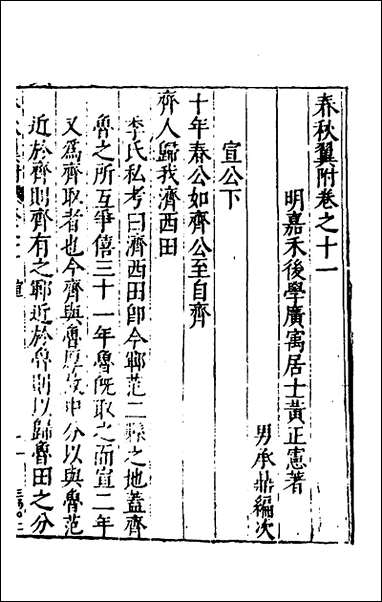 春秋翼附卷之十一
明嘉禾後學廣寓居士黃正憲著
男承鼎編次
宣公下
十年春公如齊公至自齊
齊人歸我濟西田
李氏私考曰濟西田卽今鄆范二縣之地蓋齊
魯之所互爭僖三十一年魯旣取之而宣二年
又為齊取者也今齊與魯厚故中分以與魯范
近於齊則齊有之鄆近於魯則以歸魯田之分